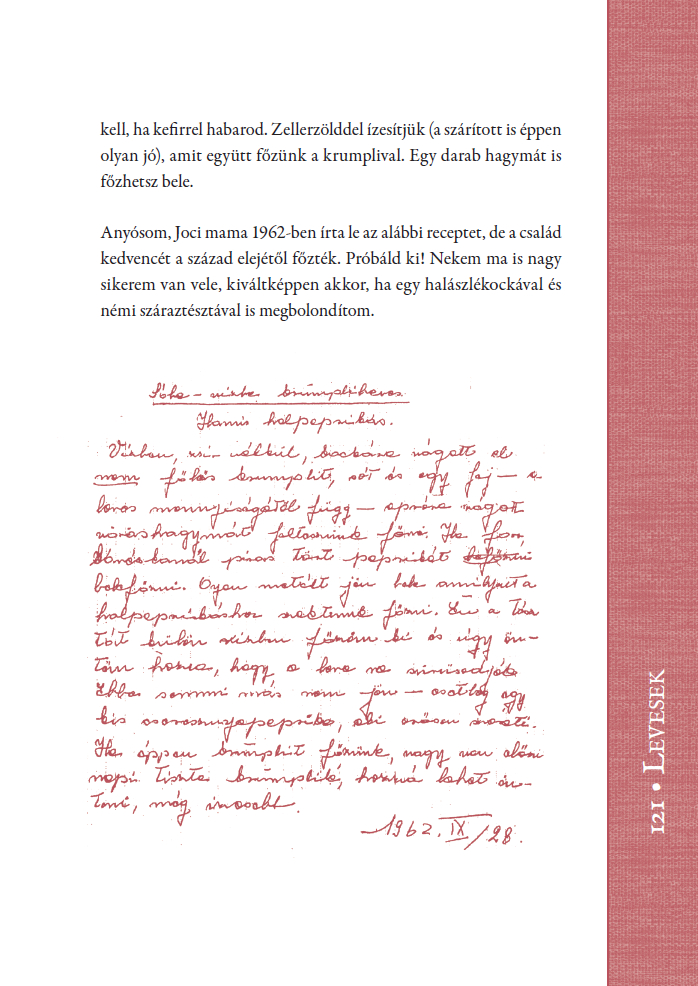 kell, ha kefirrel habarod. Zellerzölddel ízesítjük (a szárított is éppen
olyan jó), amit együtt főzünk a krumplival. Egy darab hagymát is
főzhetsz bele.
Anyósom, Joci mama 1962-ben írta le az alábbi receptet, de a család
kedvencét a század elejétől főzték. Próbáld ki! Nekem ma is nagy
sikerem van vele, kiváltképpen akkor, ha egy halászlékockával és
némi száraztésztával is megbolondítom.
krumplileves
Hamis halpaprikás.
Vízben, zsír nélkül, kockára vágott el
nem főlős krumplit, sót és egy fej — a
leves mennyiségétől függ — apróra vágott
vöröshagymát felteszünk főni. Ha forr,
kávéskanál piros tört paprikát
belefőzni. Olyan metélt jön bele amilyent a
halpaprikáshoz szoktunk főzni. Én a tész
tát külön vízben főzöm ki és úgy ön-
töm hozzá, hogy a leve ne sűrűsödjék
Ebbe semmi más nem jön — esetleg egy
kis cseresznyepaprika, aki erősen szereti.
Ha éppen krumplit főzünk, vagy van előző
napi tiszta krumplilé, hozzá lehet ön-
teni, még ízesebb.
1962. IX/28.
121 • Levesek